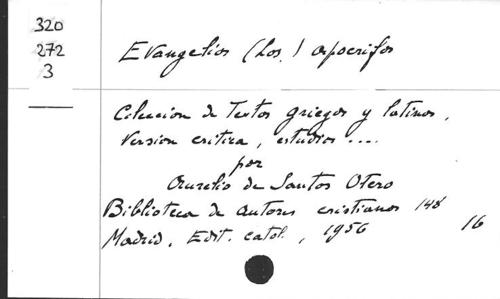 320
272
3
Evangelios (Los.) apocrifos
Coleccion de Textos griegos y latinos,
Version critica, estudios ....
por
Aurelio de Santos Otero
Biblioteca de autores cristianos 148
Madrid, Edit. catol., 1956 16